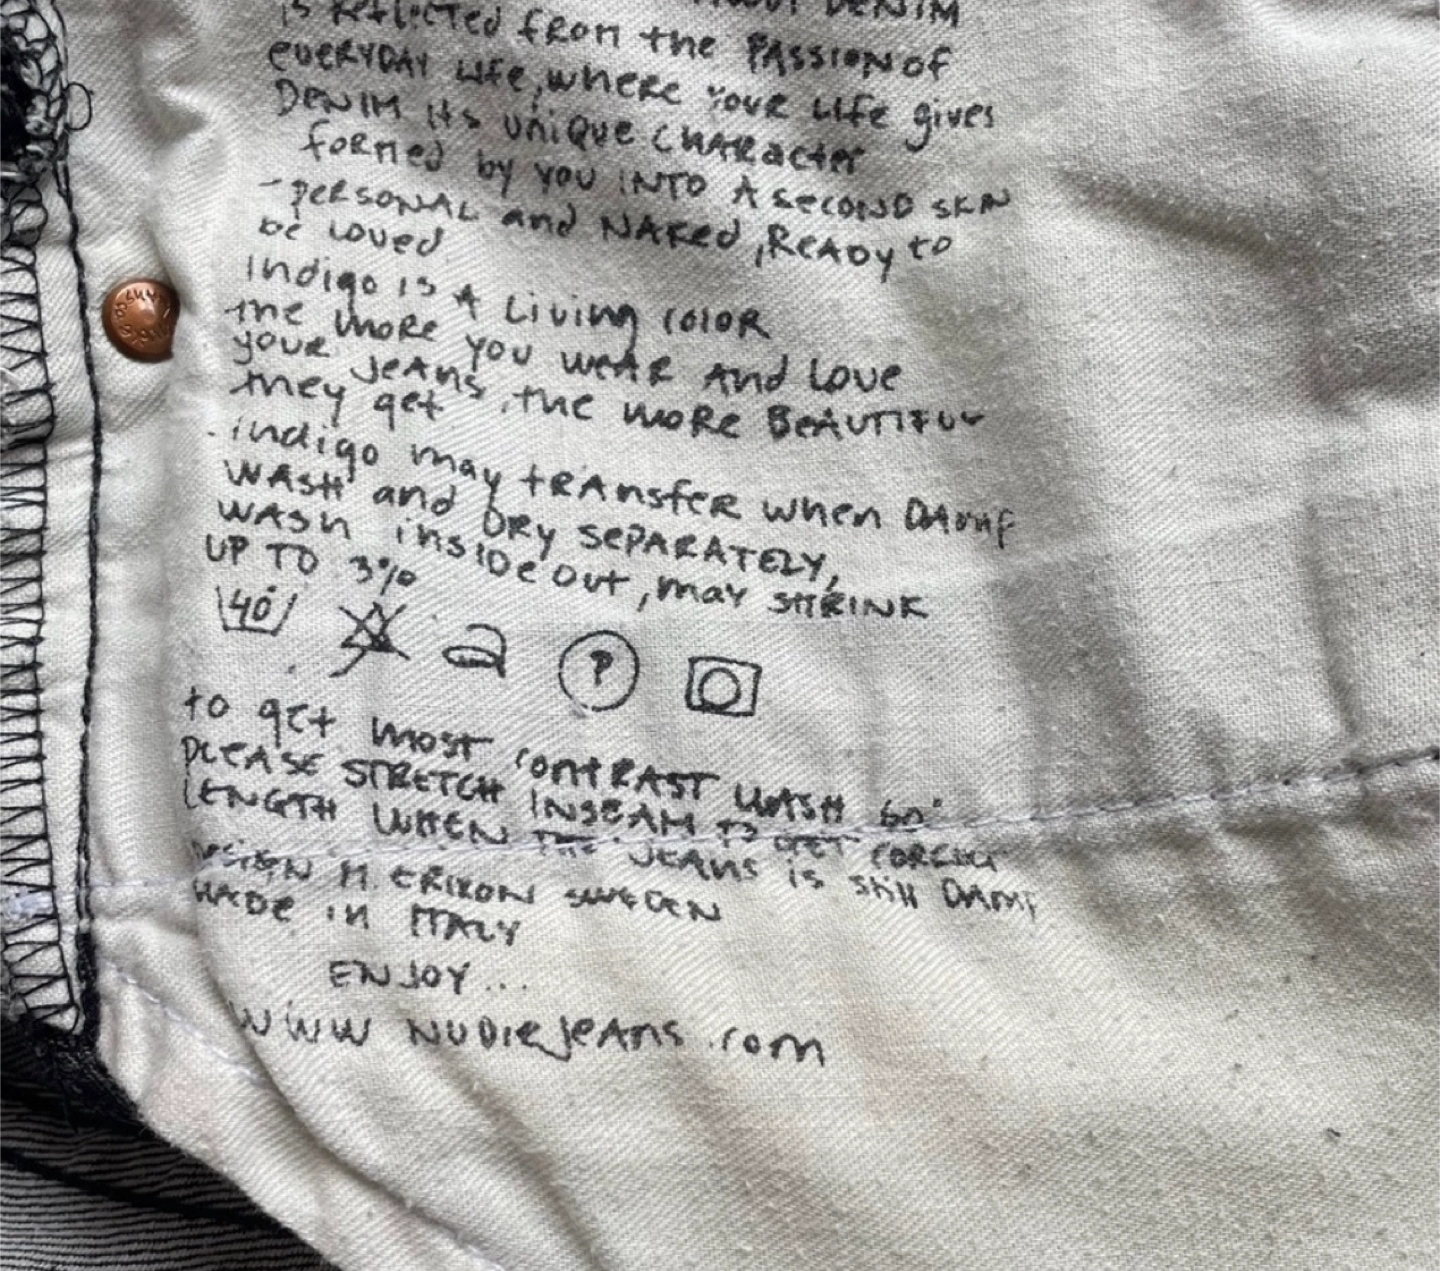 DENIM
is Reflected from the PASSION of
EVERYDAY Life, where your Life gives
DENIM its unique CHARacter
formed by you INTO A second skin
- personal and naked, Ready to
be loved
Indigo is A Living color
the more you weAR And Love
your JeAns, the more BeAUTIFUL
they get
. indigo may tRAnsfer when DAmp
WASH and DRY SEPARATELY,
WASH insideout, may SHRINK
UP TO 3%
40°
P
to get most contRAST WASH 60°
PLEASE STRETCH INSEAM TO GET CORECCT
LENGTH WHEN THE JEAns is still DAmp
DESIGN M. ERIXON SWEDEN
MADE IN ITALY
ENJOY...
www NUDIEJeAns.com